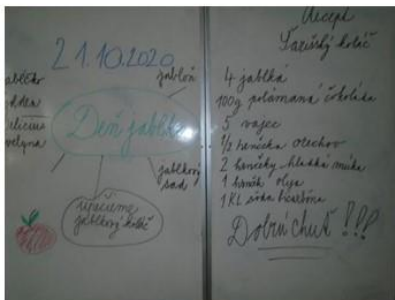 21.10.2020
jabloň
Deň jablka
jablkový
sad
upečieme
jablkový koláč
Recept
koláč
4 jablká
100g polámaná čokoláda
5 vajec
1/2 hrnčeka orechov
2 hrnčeky hladká múka
1 hrnček oleja
1 KL sóda bicarbóna
Dobrú chuť !!!